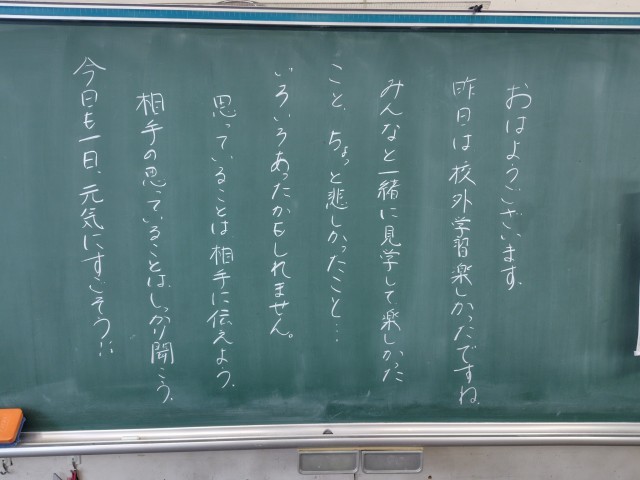 おはようございます。
昨日は校外学習楽しかったですね。
みんなと一緒に見学して楽しかった
こと、ちょっと悲しかったこと…
いろいろあったかもしれません。
思っていることは相手に伝えよう。
相手の思っていることは、しっかり聞こう。
今日も一日、元気にすごそう!!